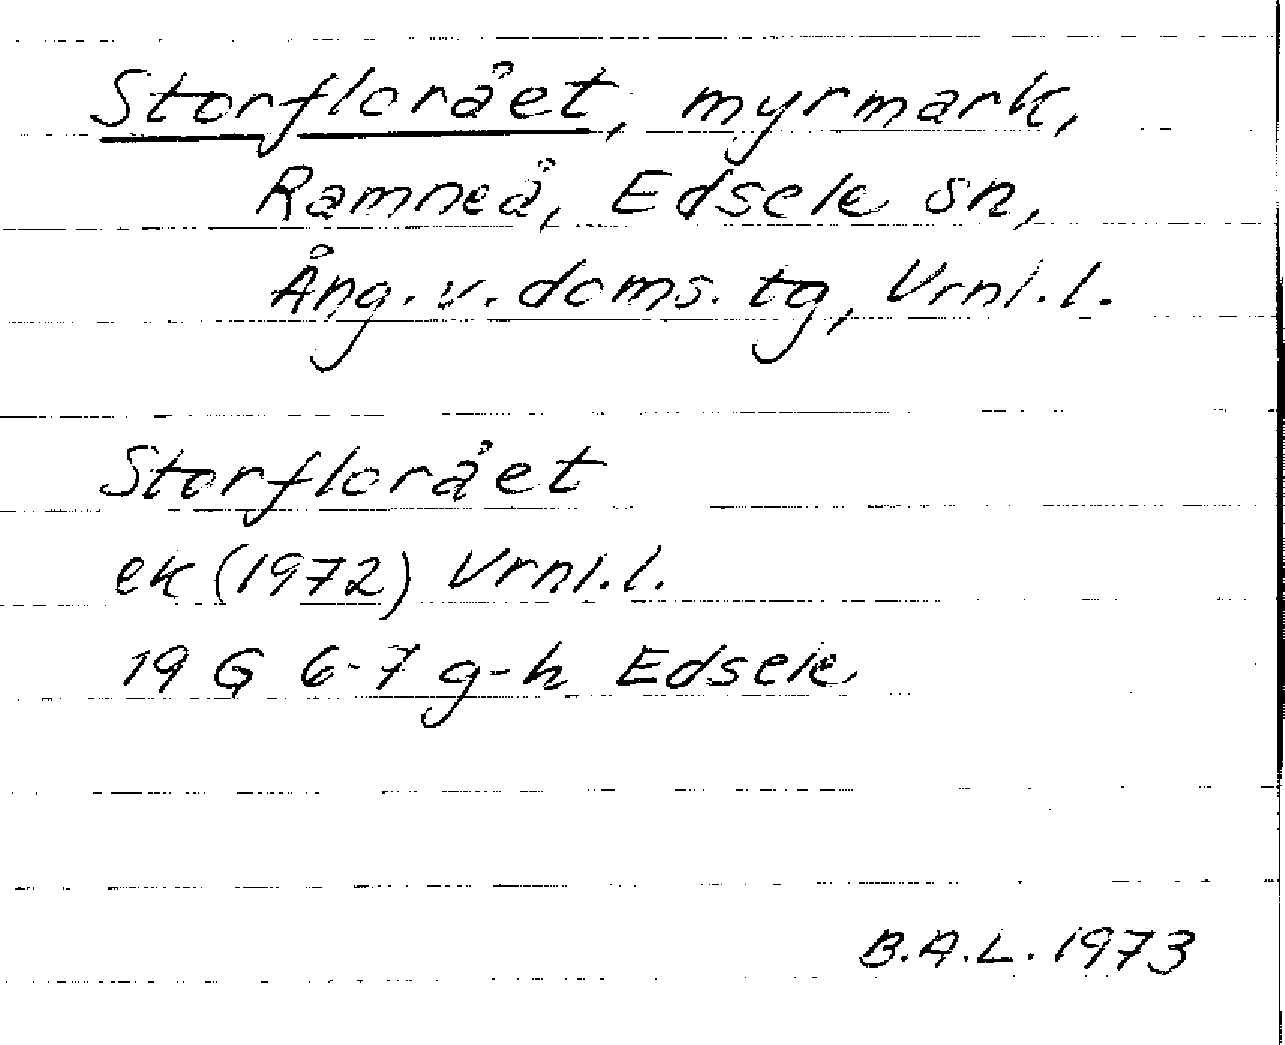 Storflorået, myrmark,
Ramneå, Edsele sn,
Ång. v. doms. tg, Vrnl. l.
Storflorået
ek (1972) Vrnl. l.
19 G 6-7 g-h Edsele
B.A.L. 1973